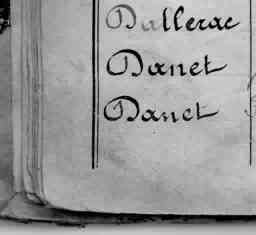 Dallerac
Danet
Danet